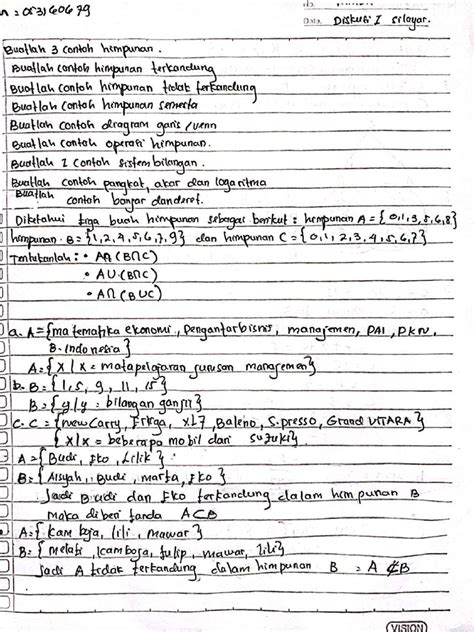 n = 053160679
Date. Diskusi I silayar.
Buatlah 3 contoh himpunan.
Buatlah contoh himpunan terkandung
Buatlah contoh himpunan tidak terkandung
Buatlah contoh himpunan semesta
Buatlah contoh diagram garis / venn
Buatlah contoh operasi himpunan.
Buatlah 1 contoh sistem bilangan.
Buatlah contoh pangkat, akar dan logaritma
Buatlah contoh banjar dan deret.
Diketahui tiga buah himpunan sebagai berikut : himpunan A = {0,1,3,5,6,8}
himpunan B = {1,2,4,5,6,7,9} dan himpunan C = {0,1,2,3,4,5,6,7}
Tentukanlah : • A∩(B∩C)
• A∪(B∩C)
• A∩(B∪C)
a. A = {matematika ekonomi, Pengantar bisnis, manajemen, PAI, PKN,
B. Indonesia}
A = {x / x = matapelajaran jurusan manajemen}
b. B = {1, 5, 9, 11, 15}
B = {y / y = bilangan ganjil}
c. C = {New Carry, Ertiga, XL7, Baleno, S.presso, Grand VITARA}
{x / x = beberapa mobil dari suzuki}
A = {Budi, Eko, Lilik}
B = {Aisyah, Budi, marta, Eko}
Jadi Budi dan Eko terkandung dalam himpunan B
Maka diberi tanda A⊂B
A = {kamboja, lili, mawar}
B = {melati, kamboja, tulip, mawar, lili}
Jadi A tidak terkandung dalam himpunan B = A ⊄ B
VISION